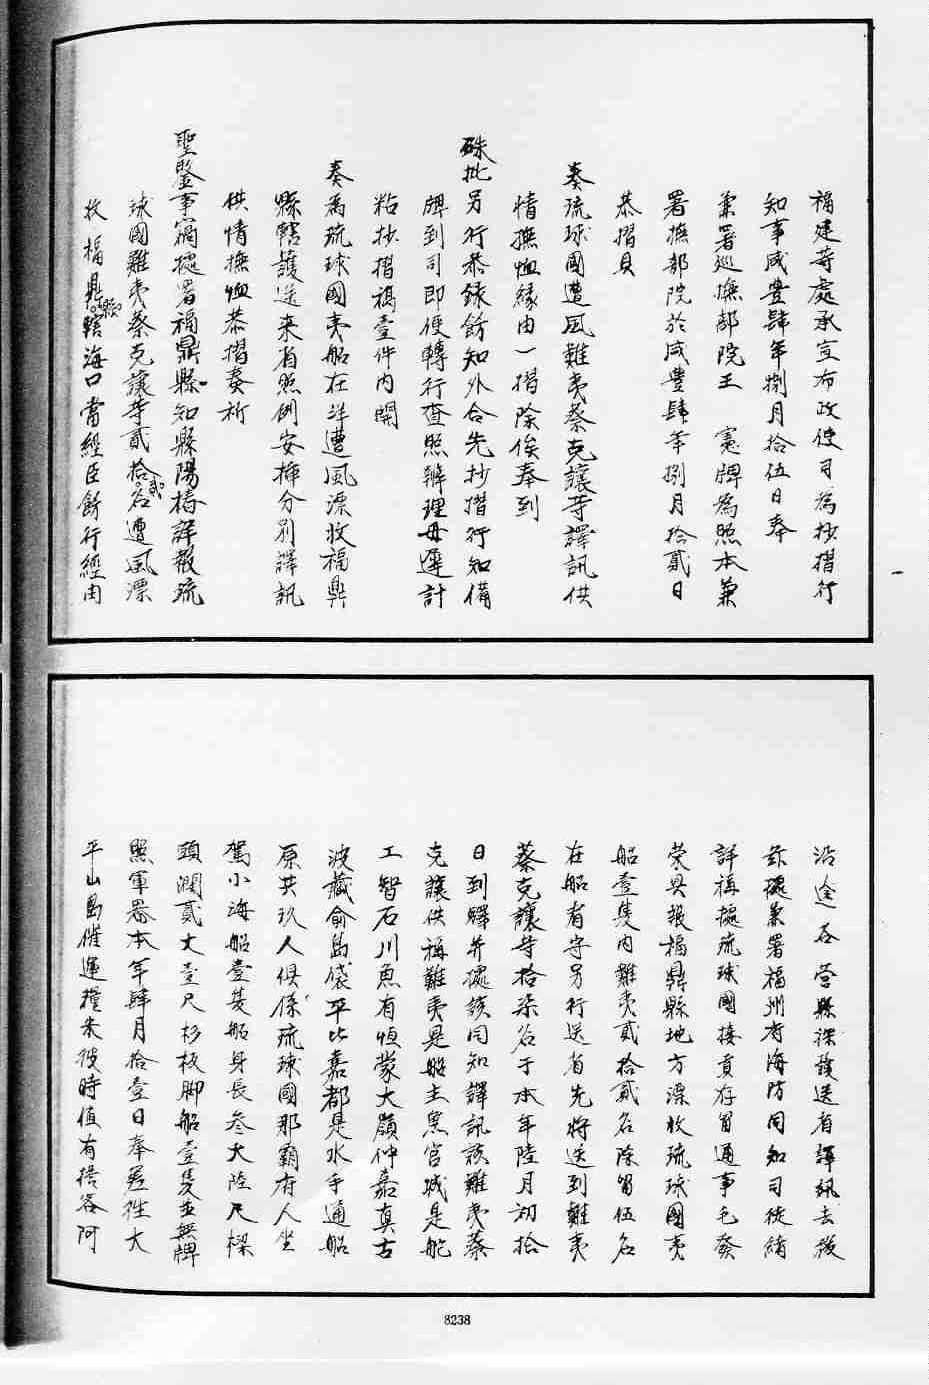 福建等處承宣布政使司為抄摺行
知事咸豊肆年捌月拾伍日奉
兼署巡撫部院王　憲牌為照本兼
署撫部院於咸豊肆年捌月拾貳日
恭摺具
奏琉球國遭風難夷蔡克讓等譯訊供
情撫恤緣由一摺除俟奉到
硃批另行恭錄飭知外合先抄摺行知備
牌到司即便轉行查照辦理毋遲計
粘抄摺稿壹件內開
奏為琉球國夷船在洋遭風漂收福鼎
縣轄護送來省照例安揷分別譯訊
供情撫恤恭摺奏祈
聖鑒事竊據署福鼎縣知縣陽椿詳報琉
球國難夷蔡克讓等貳拾貳名遭風漂
收福鼎縣轄海口當經臣飭行經由
沿途各營縣深護送省譯訊去後
茲據兼署福州府海防同知司徒緒
詳稱據琉球國接貢存留通事毛發
榮具報福鼎縣地方漂收琉球國夷
船壹隻內難夷貳拾貳名除留伍名
在船看守另行送省先將送到難夷
蔡克讓等拾柒名于本年陸月初拾
日到驛并據該同知譯訊該難夷蔡
克讓供稱難夷是船主黑宮城是舵
工智石川魚有恒蒙大嶺仲嘉真古
波藏俞島袋平比嘉都是水手通船
原共玖人俱係琉球國那霸府人坐
駕小海船壹隻船身長叁大陸尺樑
頭濶貳丈壹尺杉板脚船壹隻並無牌
照軍器本年肆月拾壹日奉差往大
平山島催運糧米彼時值有搭客阿